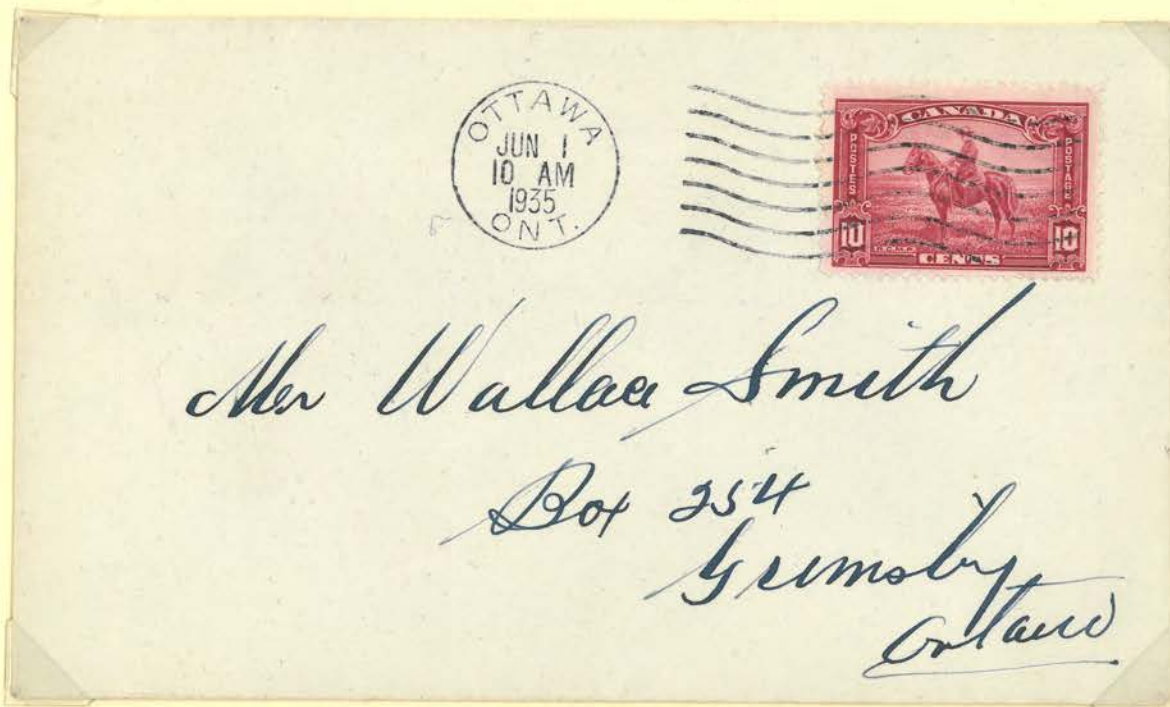 OTTAWA
JUN 1
10 AM
1935
ONT.
CANADA
POSTES
POSTAGE
10
10
R.C.M.P.
CENTS
Mr Wallace Smith
Box 254
Grimsby
Ontario